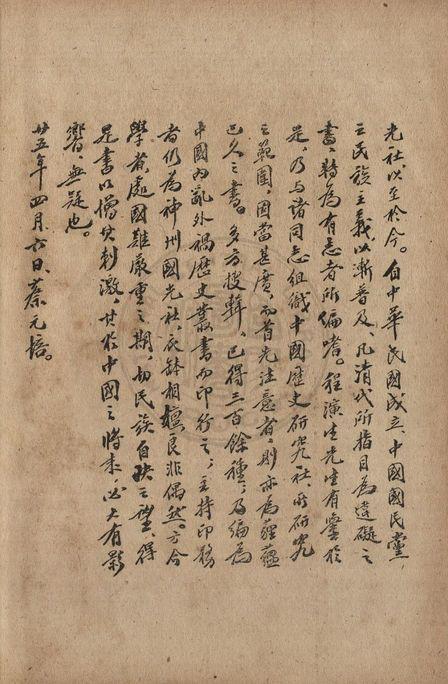 光社，以至於今。自中華民國成立，中國國民黨，
之民族主義以漸普及，凡清代所指目為違礙之
書，轉為有志者所偏嗜。程演生先生有鑒於
是，乃與諸同志組織中國歷史研究社，所研究
之範圍，固當甚廣，而首先注意者，則亦為蘊蘊
已久之書。多方搜輯，已得三百餘種，乃編為
中國內亂外禍歷史叢書而印行之，主持印務
者仍為神州國光社，衣鉢相嬗，良非偶然。方今
學者，處國難嚴重之期，切民族自決之望，得
是書以增其刺激，其於中國之將來，必大有影
響，無疑也。
廿五年四月六日，蔡元培。